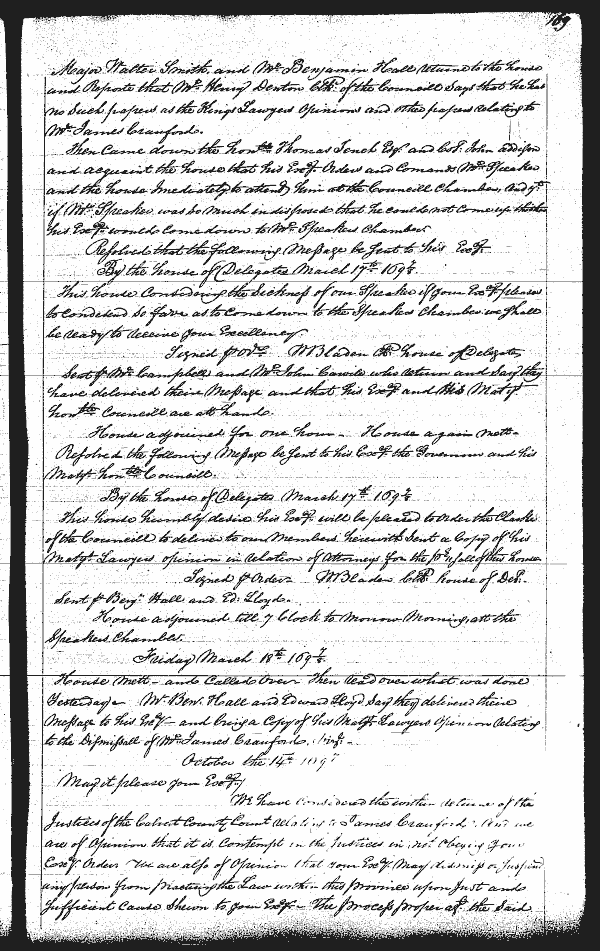 169
Major Walter Smith and Mr. Benjamin Hall returne to the house
and Reporte that Mr. Henry Denton Clk. of the Councill Says that he has
no Such papers as the Kings Lawyers Opinions and other papers relating to
Mr. James Crauford.
Then Came down the honble. Thomas Tench Esqr. and Col. John Addison
and acquaint the house that his Excy. Orders and Comands Mr. Speaker
and the house Imediately to attend him at the Councill Chamber, and yt.
if Mr. Speaker was so much indisposed that he could not Come up thither
his Excy. would Come down to Mr. Speakers Chamber
Resolved that the following Message be Sent to his Excy.
By the house of Delegates March 17th. 169 7/8
This house Considering the Sickness of our Speaker if your Excy. please
to Condesend so farre as to Come down to the Speakers Chamber we shall
be ready to receive your Excellency
Signed p ordr. WBladen Clk. house of Delegates
Sent p Mr. Campbell and Mr. John Gawile who return and Say they
have delivered their Message and that his Excy. and His Matys.
honble. Councill are att hand.
House adjourned for one hour - House again mett.
Resolved the following Message be Sent to his Excy. the Governour and his
Matys. honble. Councill.
By the house of Delegates March 17th. 169 7/8
This house humbly desire his Excy. will be pleased to order the Clarke
of the Councill to deliver to our Members herewith Sent a Copy of his
Matys. Lawyers opinion in relation of Attorneys for the of this house
Signed p Order WBladen Clk. house of Del.
Sent p Benj. Hall and Ed: Lloyd.
House adjourned till 7 Clock to Morrow Morning att the
Speakers Chamber.
Friday March 18th. 169 7/8
House Mett - and Called Over Then read over what was done
Yesterday - Mr. Ben. Hall and Edward Lloyd Say they delivered their
Message to his Excy. - and bring a Copy of his Matys. Lawyers Opinion relating
to the Dismissall of Mr. James Crauford.
October the 14th. 1697
May it please your Excy.
We have Considered the within returne of the
Justices of the Calvert County Court relating to James Crauford. And we
are of Opinion that it is Contempt in the Justices in not obeying your
Excys. Order. We are also of Opinion that your Excy. May dismiss or Suspend
any person from practicing the Law within this province upon Just and
Sufficient Cause Shewn to your Excy. - The process proper att the Said